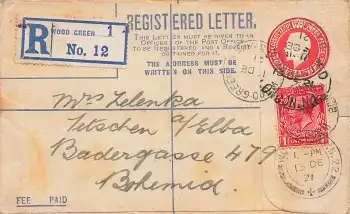 WOOD GREEN 1
R
No. 12
REGISTERED LETTER.
THIS LETTER MUST BE GIVEN TO AN
OFFICER OF THE POST OFFICE
TO BE REGISTERED, AND A RECEIPT
OBTAINED FOR IT.
THE ADDRESS MUST BE
WRITTEN ON THIS SIDE.
Mrs Zelenka
Tetschen a/Elba
Badergasse 479
Bohemia
FEE PAID
PM
13 DE
21